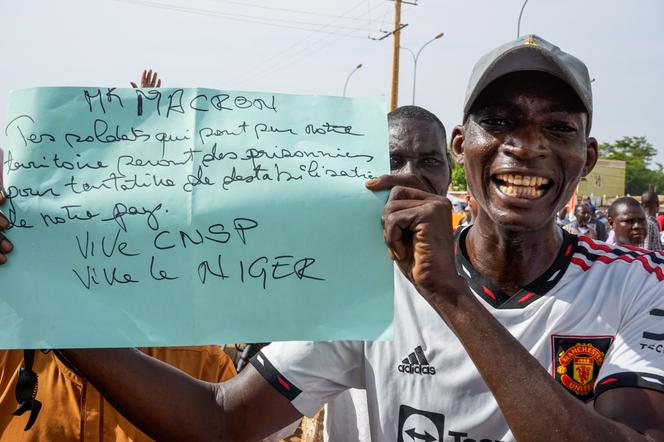 MR MACRON
Tes soldats qui sont sur notre
territoire seront des prisonniers
pour tentative de destabilisation
de notre pays.
VIVE CNSP
Vive le NIGER
adidas
MANCHESTER
UNITED
TEC